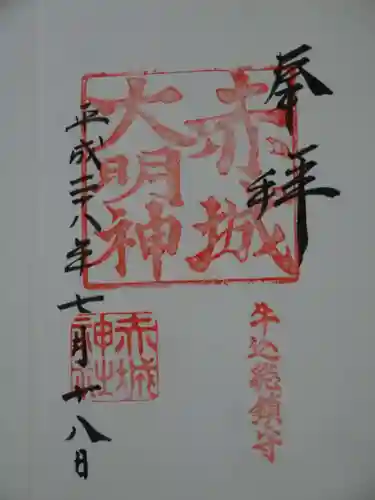 奉拝
牛込総鎮守
赤城
大明神
赤城
神社
平成二十八年七月廿八日